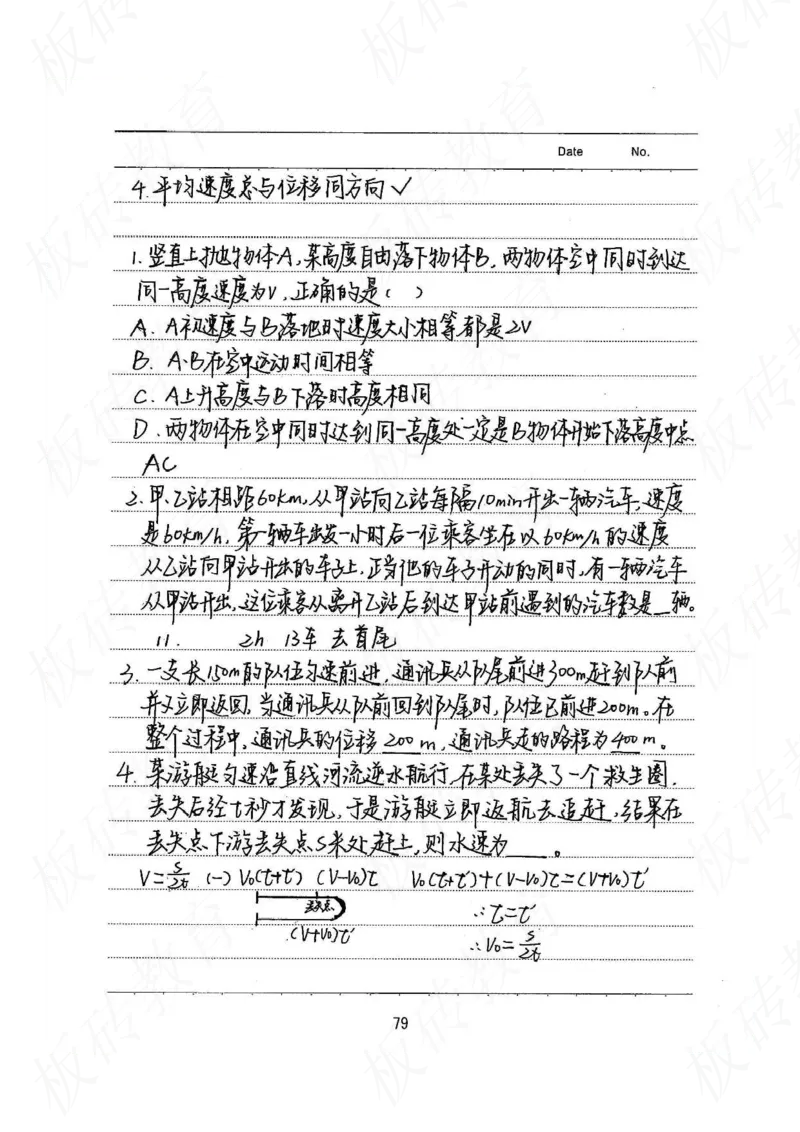 Date No.
4. 平均速度总与位移同方向✓
1. 竖直上抛物体A,某高度自由落下物体B,两物体空中同时到达
同一高度速度为V,正确的是( )
A. A初速度与B落地时速度大小相等都是2V
B. A·B在空中运动时间相等
C. A上升高度与B下落时高度相同
D. 两物体在空中同时达到同一高度处一定是B物体开始下落高度中点
AC
2. 甲、乙站相距60km,从甲站向乙站每隔10min开出一辆汽车,速度
是60km/h,第一辆车出发一小时后一位乘客坐在以60km/h的速度
从乙站向甲站开出的车子上,正当他的车子开动的同时,有一辆汽车
从甲站开出,这位乘客从离开乙站后到达甲站前遇到的汽车数是__辆。
11. 2h 13车 去首尾
3. 一支长150m的队伍匀速前进,通讯兵从队尾前进300m赶到队前
并又立即返回,当通讯兵从队前回到队尾时,队伍已前进200m。在
整个过程中,通讯兵的位移200m,通讯兵走的路程为400m。
4. 某游艇匀速沿直线河流逆水航行,在某处丢失了一个救生圈,
丢失后经t秒才发现,于是游艇立即返航去追赶,结果在
丢失点下游丢失点S米处赶上,则水速为____。
V=S/2t (一) V₀(t+t′) (V-V₀)t V₀(t+t′)+(V-V₀)t=(V+V₀)t′
丢失点 ∴t=t′
(V+V₀)t′ ∴V₀=S/2t
79
板砖教育